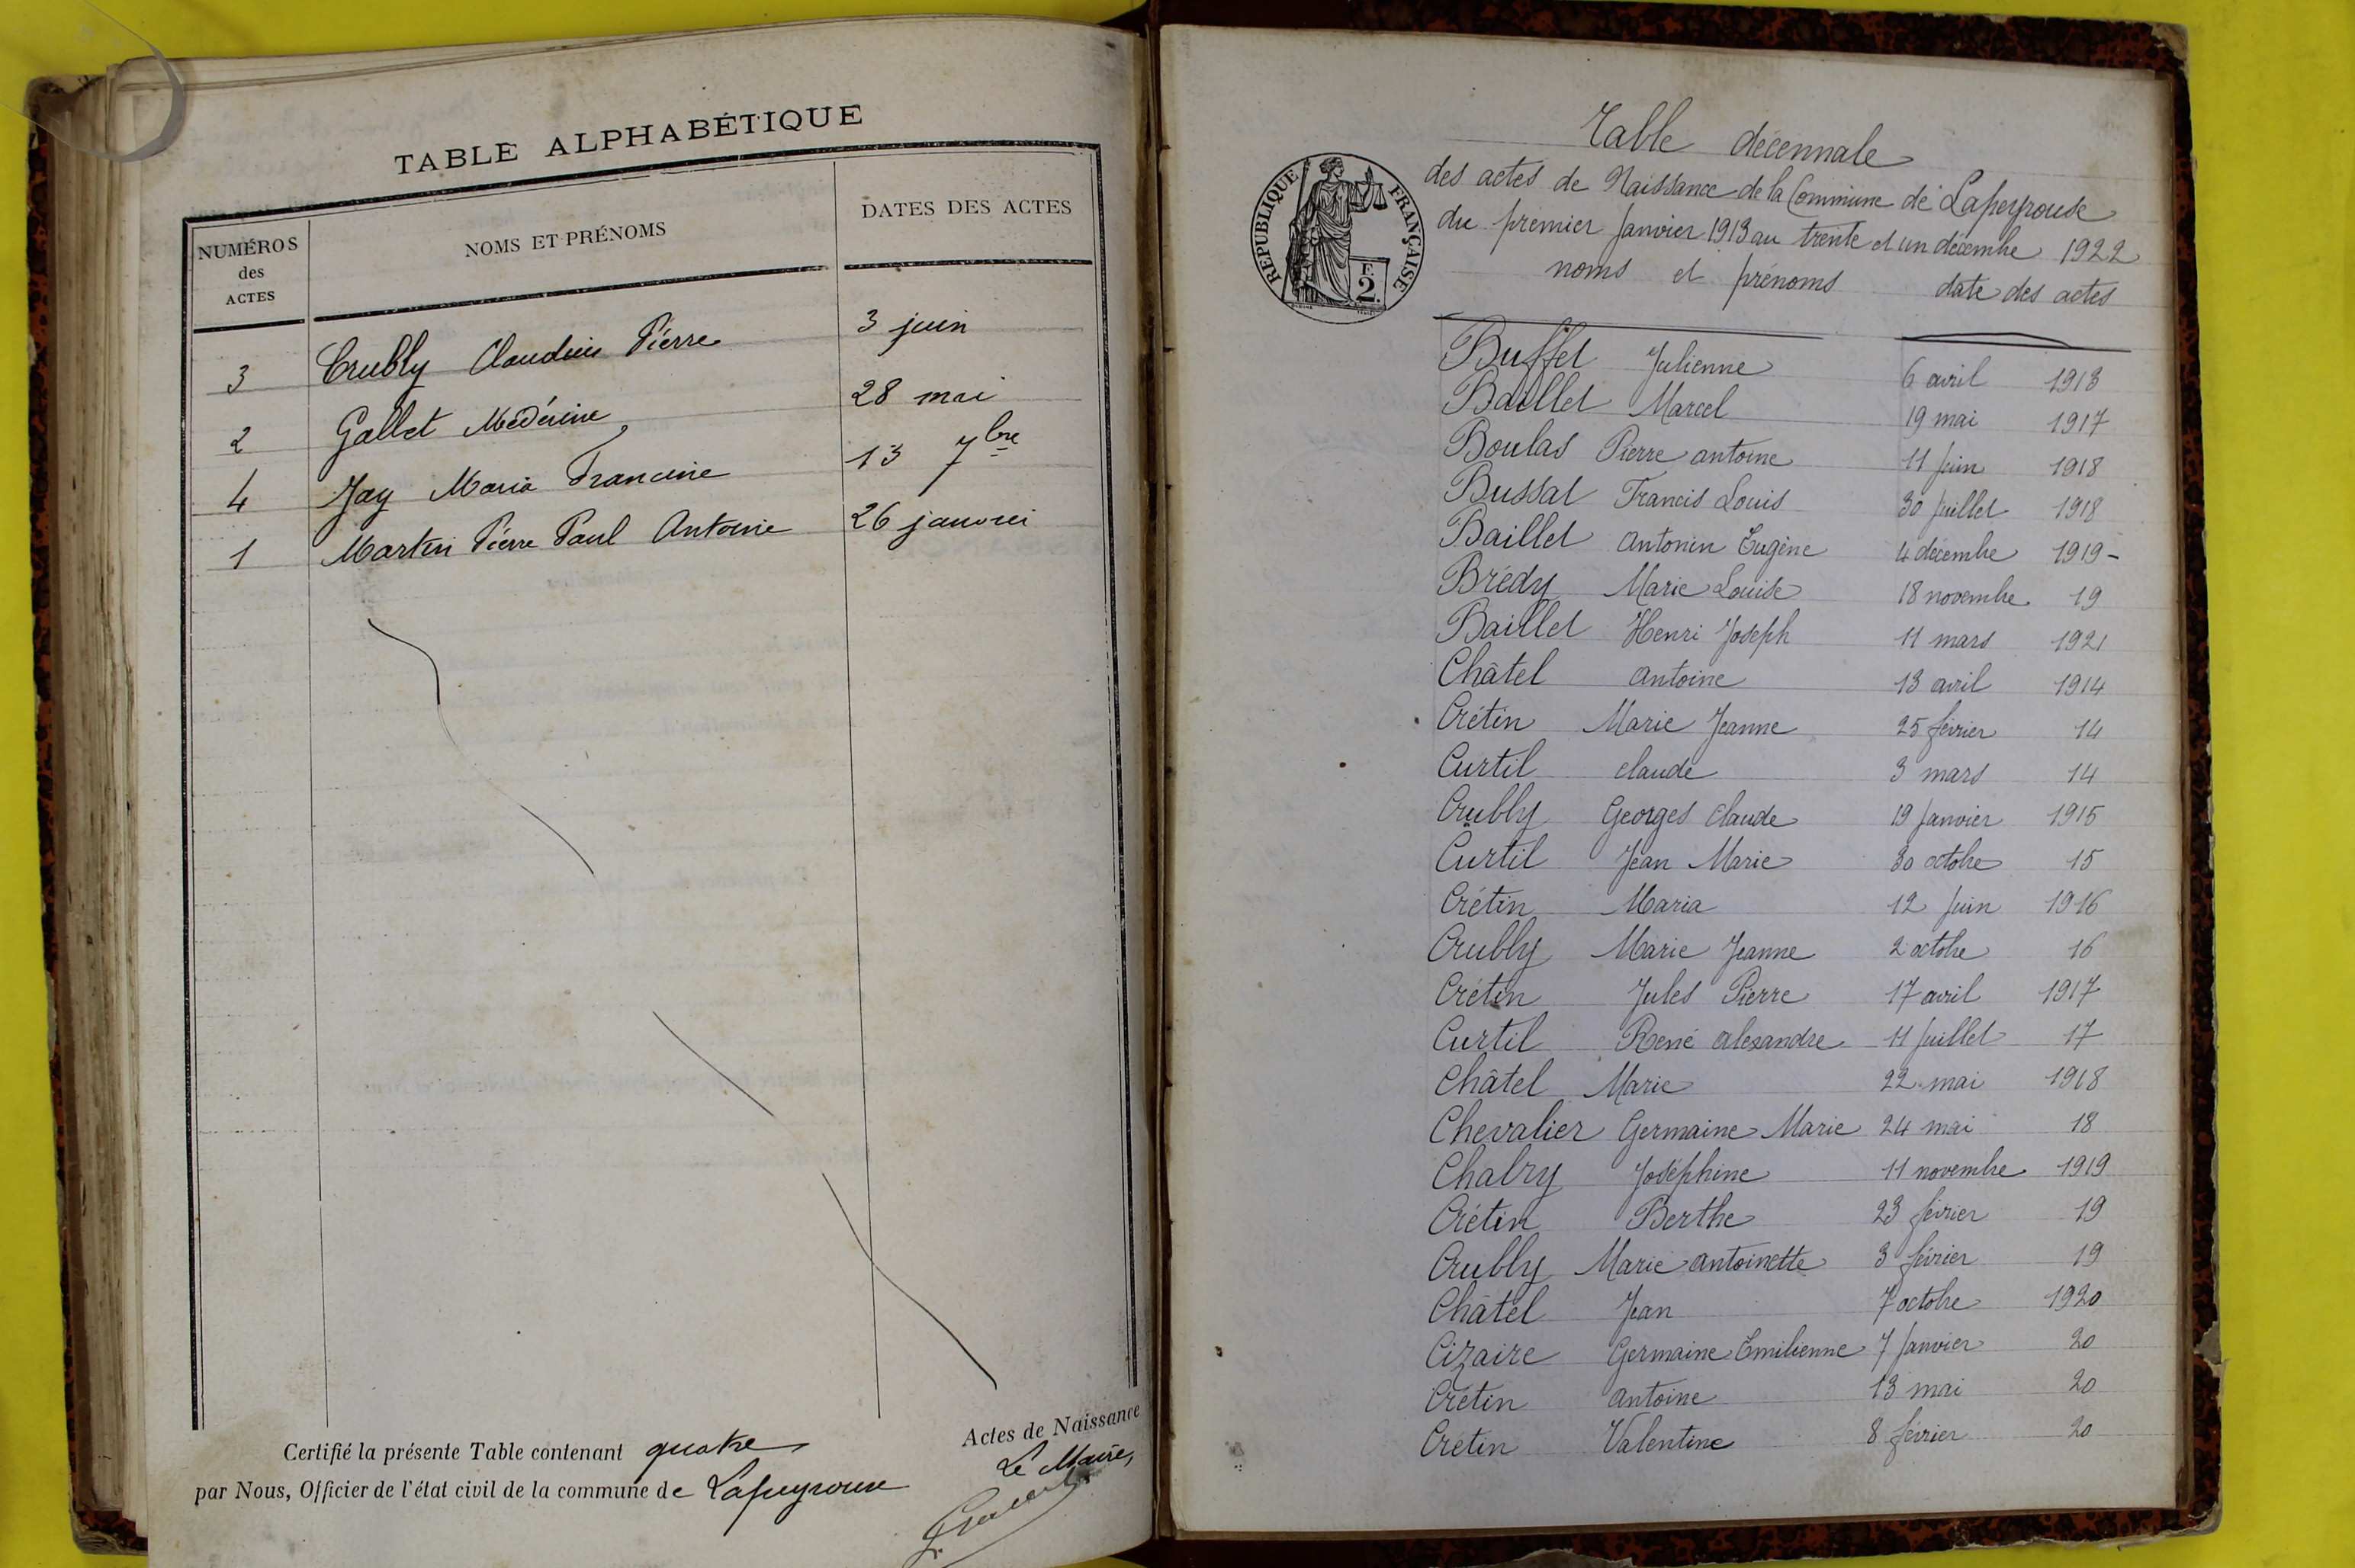 TABLE ALPHABÉTIQUE
NUMÉROS des ACTES
NOMS ET PRÉNOMS
DATES DES ACTES
3 Crubly Claudius Pierre 3 juin
2 Gallet Médérine 28 mai
4 Jay Maria Francine 13 7bre
1 Martin Pierre Paul Antoine 26 janvier
Certifié la présente Table contenant quatre Actes de Naissance
par Nous, Officier de l'état civil de la commune de Lapeyrouse
Le Maire,
Table décennale
des actes de Naissance de la Commune de Lapeyrouse
du premier Janvier 1913 au trente et un décembre 1922
noms et prénoms date des actes
RÉPUBLIQUE FRANÇAISE
F.
2.
Buffet Julienne 6 avril 1913
Baillet Marcel 19 mai 1917
Boulas Pierre antoine 11 Juin 1918
Bussat Francis Louis 30 Juillet 1918
Baillet antonin Eugène 4 décembre 1919 -
Brédy Marie Louise 18 novembre 19
Baillet Henri Joseph 11 mars 1921
Châtel antoine 13 avril 1914
Crétin Marie Jeanne 25 février 14
Curtil claude 3 mars 14
Crubly Georges claude 19 Janvier 1915
Curtil Jean Marie 30 octobre 15
Crétin Maria 12 Juin 1916
Crubly Marie Jeanne 2 octobre 16
Crétin Jules Pierre 17 avril 1917
Curtil René alexandre 11 Juillet 17
Châtel Marie 22 mai 1918
Chevalier Germaine Marie 24 mai 18
Chalry Joséphine 11 novembre 1919
Crétin Berthe 23 février 19
Crubly Marie antoinette 3 février 19
Châtel Jean 7 octobre 1920
Cizaire Germaine Emilienne 7 Janvier 20
Crétin antoine 13 mai 20
Crétin Valentine 8 février 20